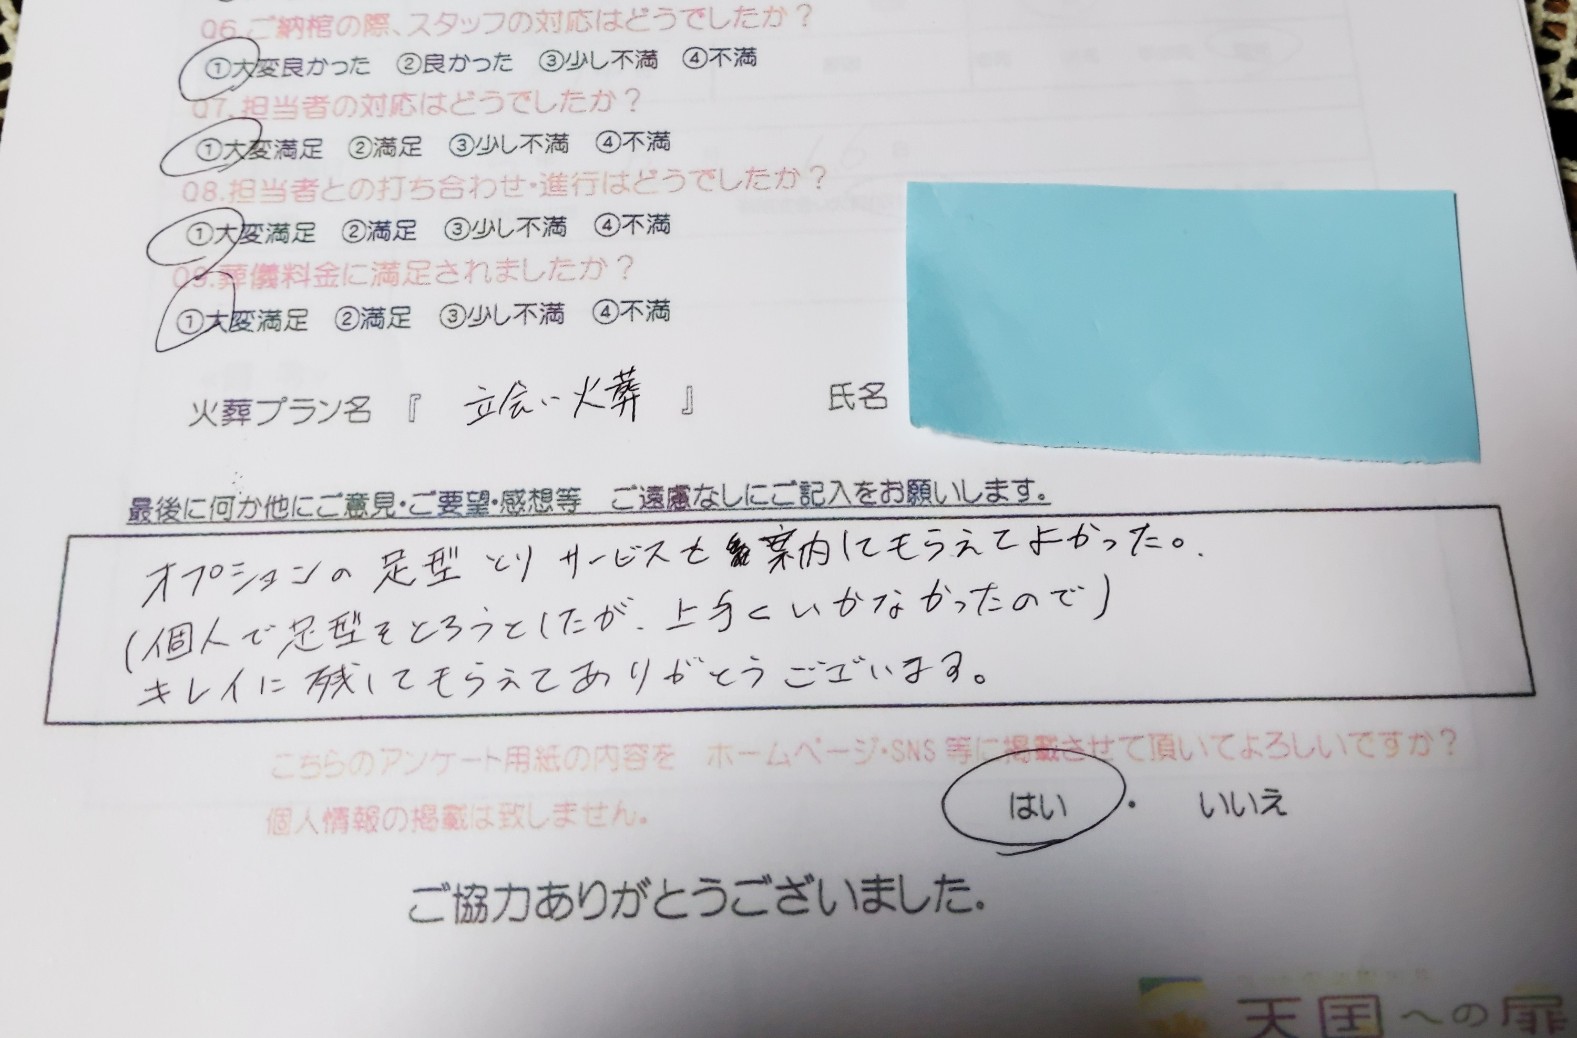 Q6.ご納棺の際、スタッフの対応はどうでしたか？
①大変良かった ②良かった ③少し不満 ④不満
Q7.担当者の対応はどうでしたか？
①大変満足 ②満足 ③少し不満 ④不満
Q8.担当者との打ち合わせ・進行はどうでしたか？
①大変満足 ②満足 ③少し不満 ④不満
Q9.葬儀料金に満足されましたか？
①大変満足 ②満足 ③少し不満 ④不満
火葬プラン名 『 立会い火葬 』 氏名
最後に何か他にご意見・ご要望・感想等 ご遠慮なしにご記入をお願いします。
オプションの足型とりサービスも案内してもらえてよかった。
(個人で足型をとろうとしたが、上手くいかなかったので)
キレイに残してもらえてありがとうございます。
こちらのアンケート用紙の内容を ホームページ・SNS等に掲載させて頂いてよろしいですか？
個人情報の掲載は致しません。 はい ・ いいえ
ご協力ありがとうございました。
天国への扉